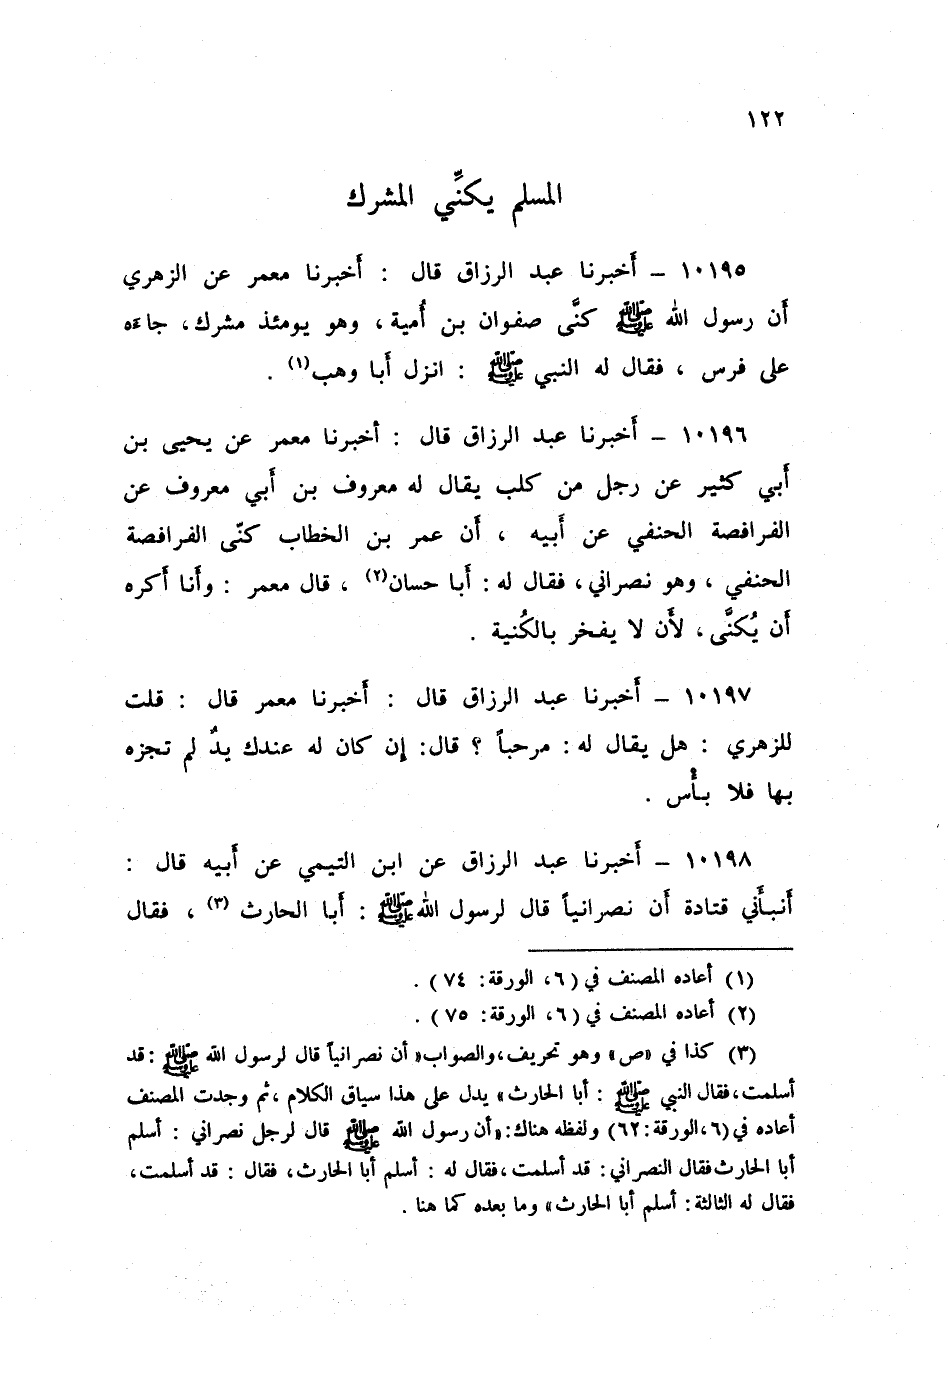 ١٢٢
المسلم يكنِّي المشرك
١٠١٩٥ – أخبرنا عبد الرزاق قال : أخبرنا معمر عن الزهري
أن رسول الله ﷺ كنَّى صفوان بن أُمية ، وهو يومئذ مشرك، جاءه
على فرس ، فقال له النبي ﷺ : انزل أبا وهب(١) .
١٠١٩٦ – أخبرنا عبد الرزاق قال : أخبرنا معمر عن يحيى بن
أبي كثير عن رجل من كلب يقال له معروف بن أبي معروف عن
الفرافصة الحنفي عن أبيه ، أن عمر بن الخطاب كنّى الفرافصة
الحنفي ، وهو نصراني، فقال له : أبا حسان(٢) ، قال معمر : وأنا أكره
أن يُكنَّى، لأن لا يفخر بالكُنية .
١٠١٩٧ – أخبرنا عبد الرزاق قال : أخبرنا معمر قال : قلت
للزهري : هل يقال له : مرحباً ؟ قال: إن كان له عندك يدٌ لم تجزه
بها فلا بأس .
١٠١٩٨ – أخبرنا عبد الرزاق عن ابن التيمي عن أبيه قال :
أنبأني قتادة أن نصرانياً قال لرسول الله ﷺ : أبا الحارث (٣) ، فقال
(١) أعاده المصنف في (٦، الورقة: ٧٤) .
(٢) أعاده المصنف في (٦، الورقة: ٧٥) .
(٣) كذا في «ص» وهو تحريف، والصواب« أن نصرانياً قال لرسول الله ﷺ :قد
أسلمت، فقال النبي ﷺ : أبا الحارث» يدل على هذا سياق الكلام ، ثم وجدت المصنف
أعاده في (٦،الورقة:٦٢) ولفظه هناك: «أن رسول الله ﷺ قال لرجل نصراني : أسلم
أبا الحارث فقال النصراني: قد أسلمت ، فقال له : أسلم أبا الحارث، فقال : قد أسلمت،
فقال له الثالثة: أسلم أبا الحارث» وما بعده كما هنا .